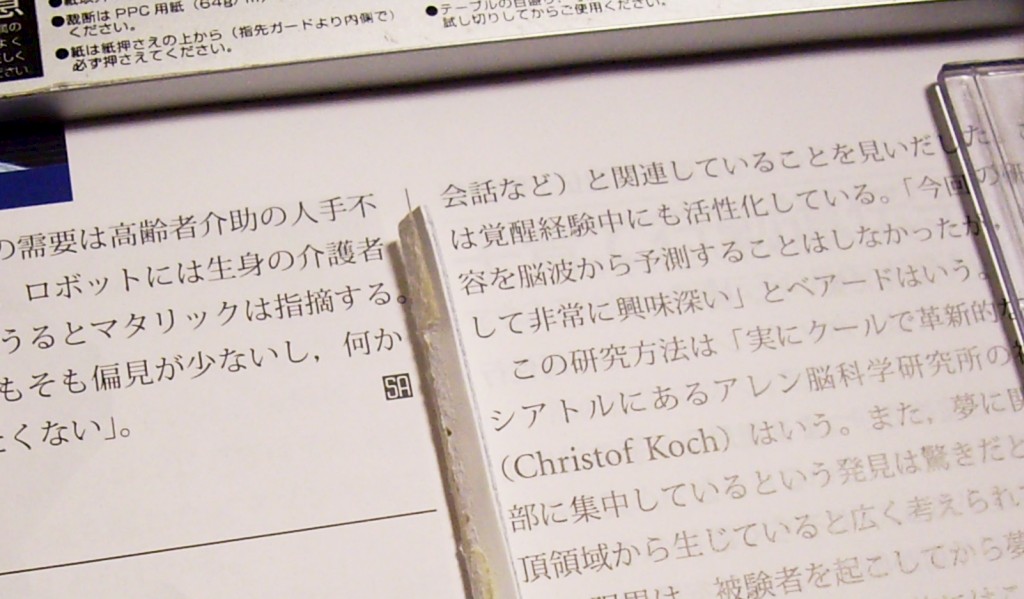 裁断は PPC 用紙（64g/m
ください。
紙は紙押さえの上から（指先ガードより内側で）
必ず押さえてください。
試し切りしてからご使用ください。
の需要は高齢者介助の人手不
ロボットには生身の介護者
うるとマタリックは指摘する。
もそも偏見が少ないし，何か
くない」。
SA
会話など）と関連していることを見いだした．
は覚醒経験中にも活性化している。「今回の研
容を脳波から予測することはしなかったが，
して非常に興味深い」とベアードはいう。
この研究方法は「実にクールで革新的
シアトルにあるアレン脳科学研究所の
（Christof Koch）はいう。また，夢に関
部に集中しているという発見は驚きだと
頂領域から生じていると広く考えられ
被験者を起こしてから夢